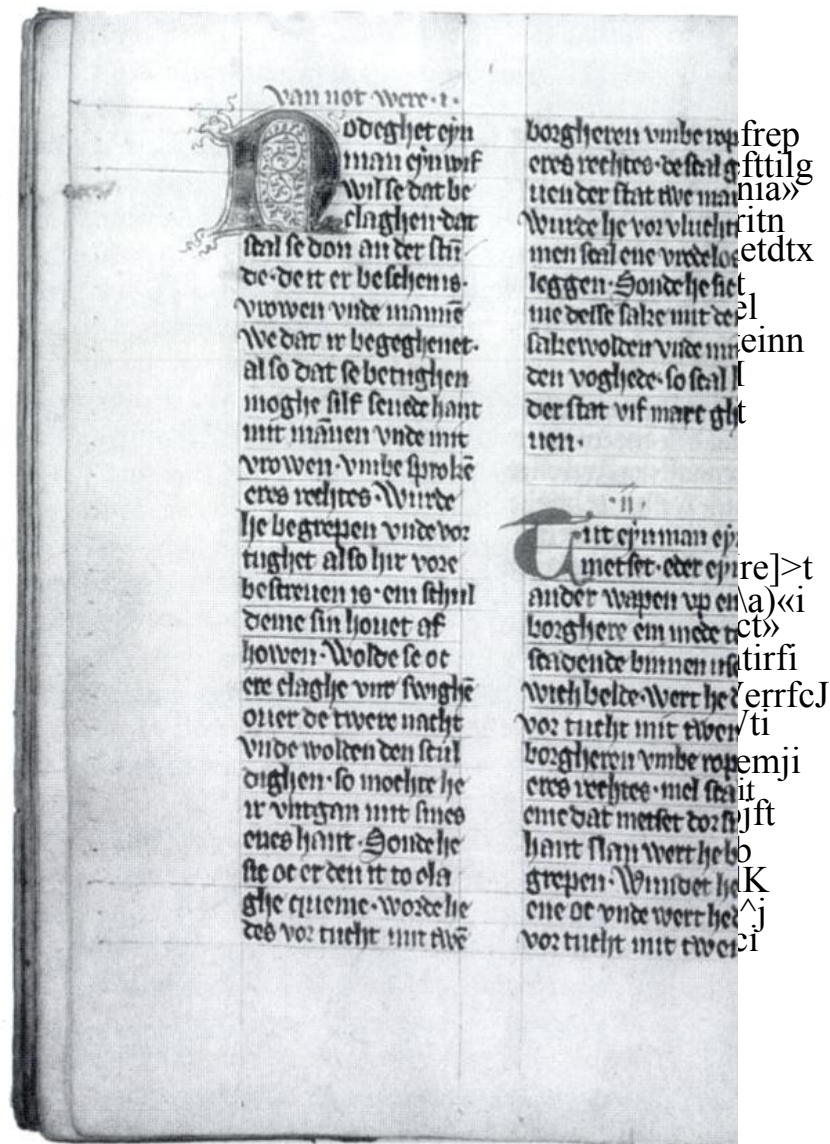 van not were · i ·
Nodeghet eyn
man eyn wif
wil se dat be
claghen dat
scal se don an der stū
de · de it er beschen is ·
vrowen vnde mannē
we dat ir begeghenet ·
also dat se betughen
moghe silf seuede hant
mit mānen vnde mit
vrowen · vmbe sprokē
eres rechtes · Wurde
he begrepen vnde vor
tughet also hir vore
bescreuen is · em schul
deme sin houet af
howen · Wolde se oc
ere claghe vnt swighē
ouer de twere nacht
vnde wolden den scul
dighen · so mochte he
ir vntgan mit sines
enes hant · Sonde he
ste oc er den it to cla
ghe queme · worde he
des vor tucht mit twē
borgheren vmbe
eres rechtes · de scal
uen der stat twe
Wurde he vor
men scal ene
leggen · Sonde he
me desse sake mit
sakewolden vnde
den voghede · so scal
der stat vif marc
uen ·
· ii ·
Tut eyn man
metset · eder
ander wapen vp
borghere em mede
scadende binnen
wichbelde · Wert he
vor tucht mit
borgheren vmbe
eres rechtes · mel
eme dat metset dor
hant slan wert he
grepen · Wundet he
ene oc vnde wert he
vor tucht mit
frep
efttilg
nia»
ritn
etdtx
t
el
einn
t
re]>t
\a)«i
ct»
tirfi
errfcJ
/ti
emji
it
jft
b
lK
^j
ci